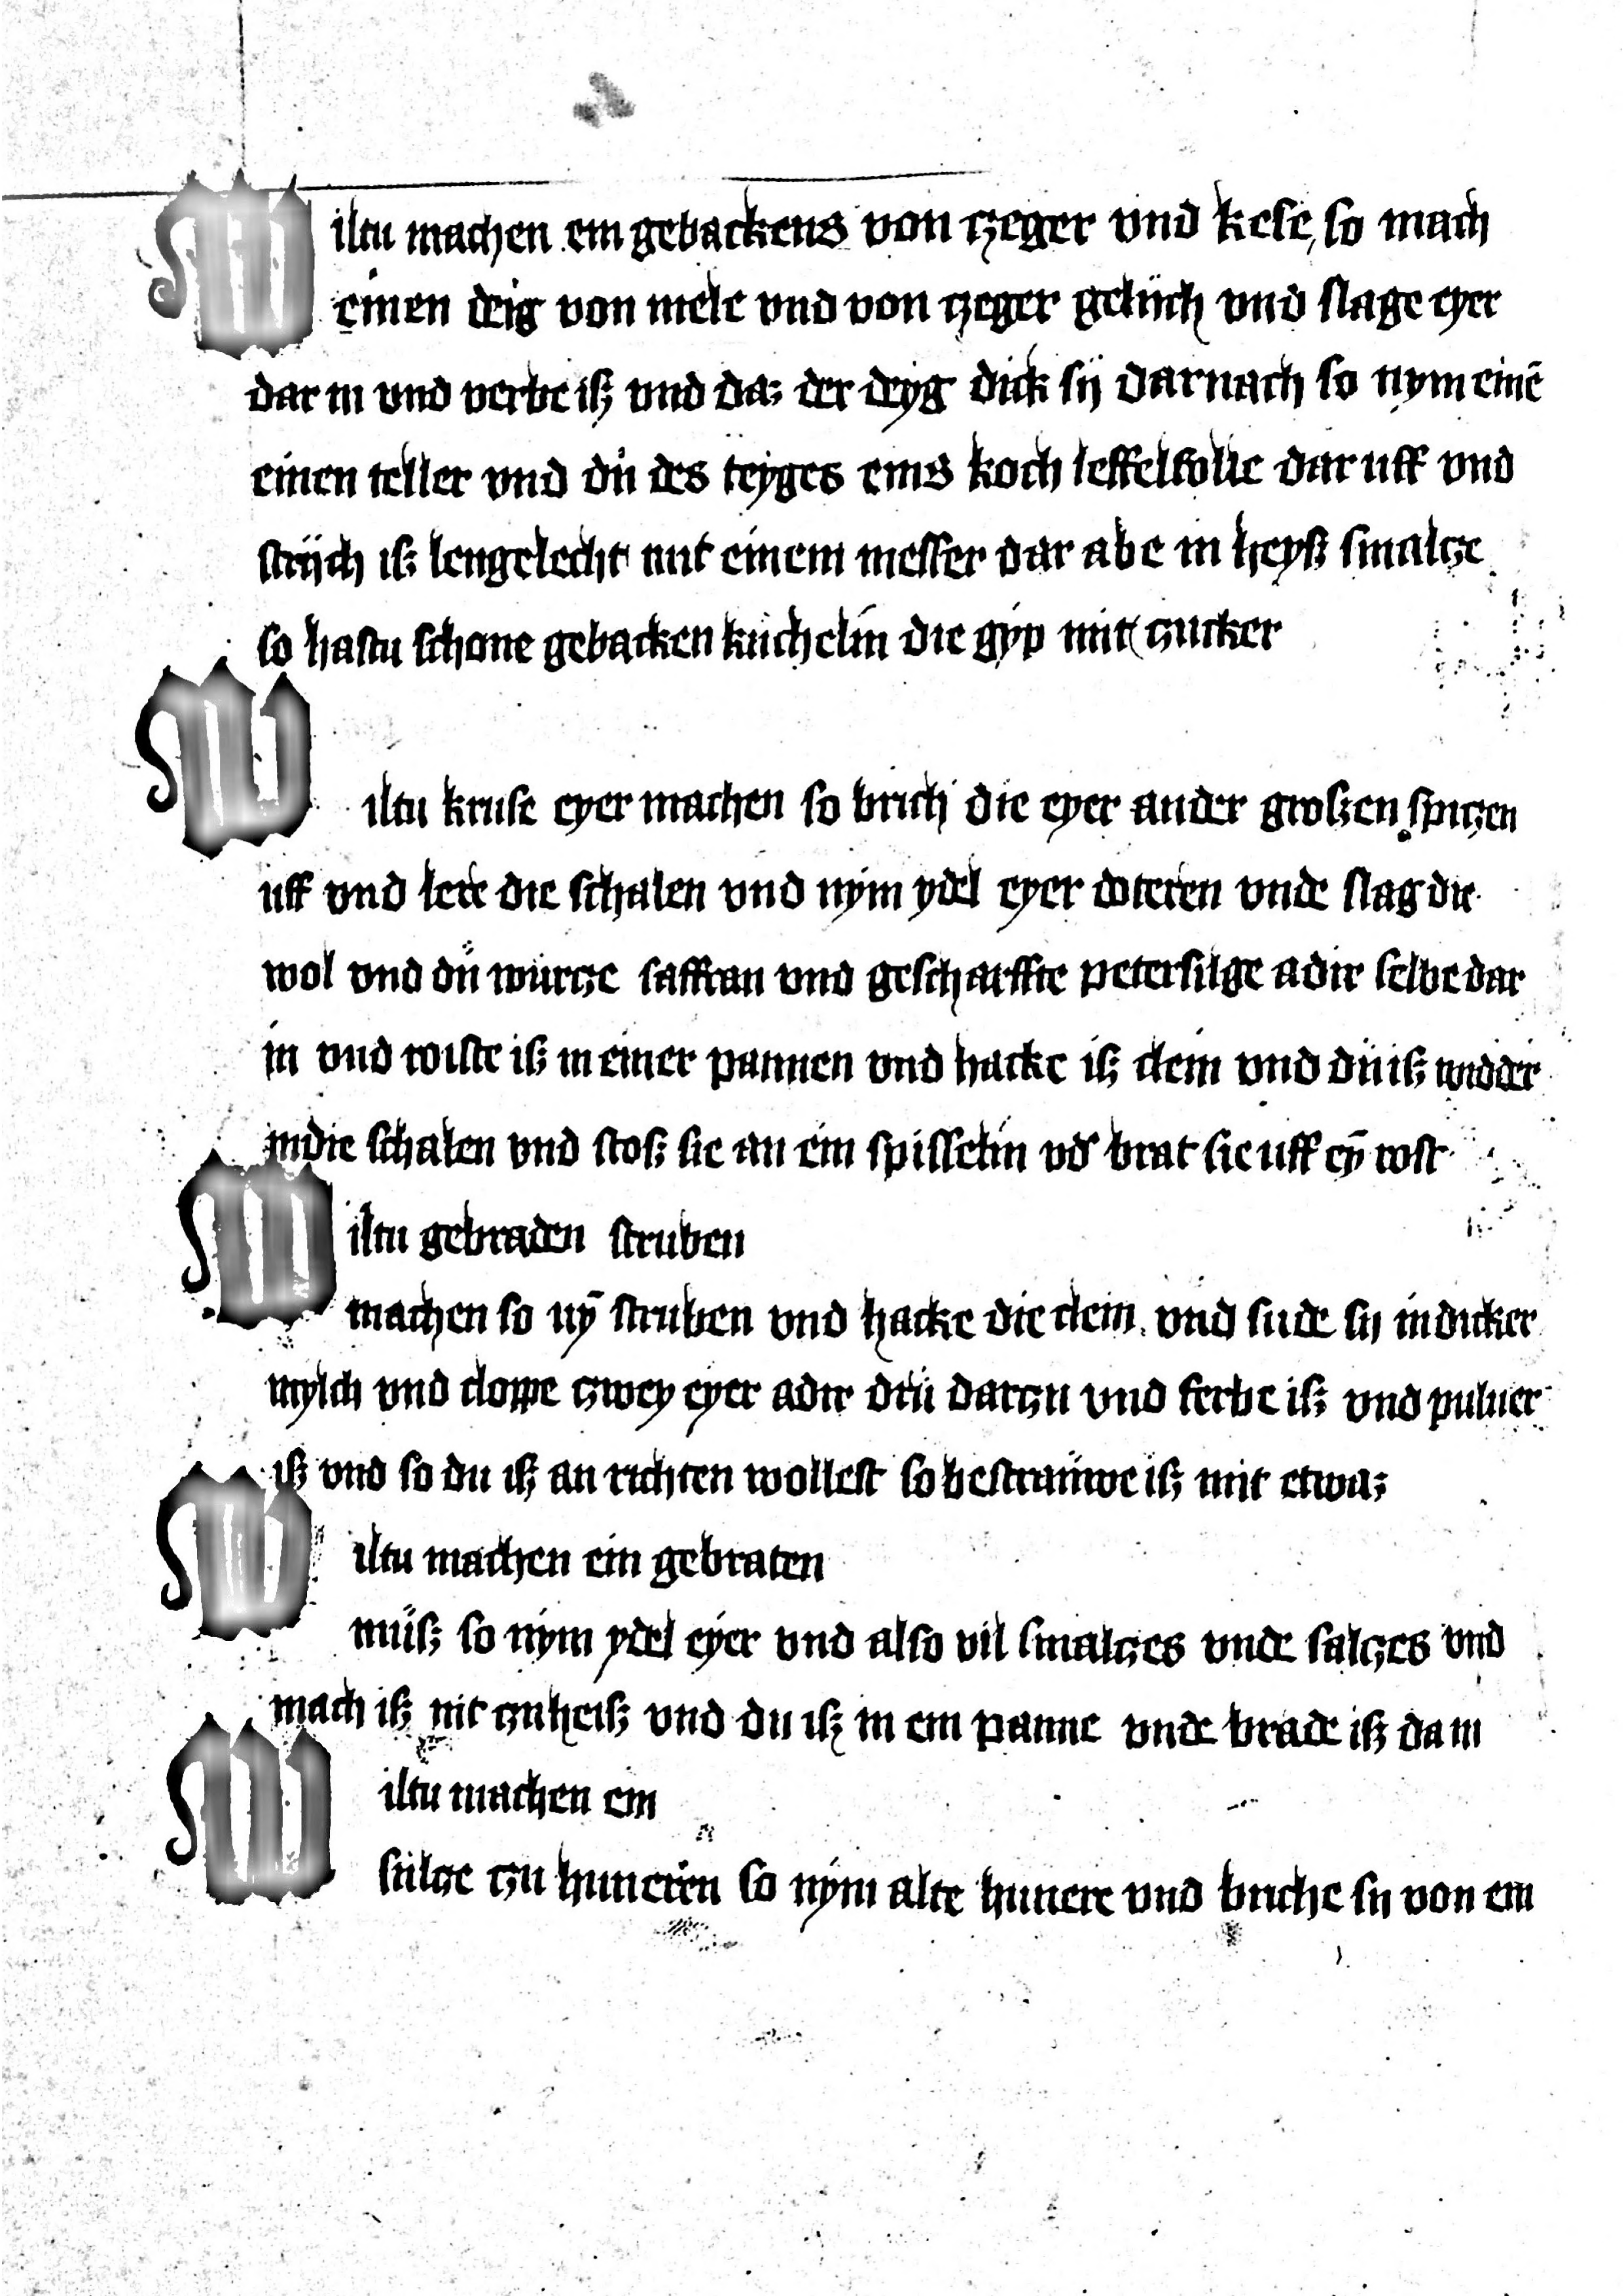 Wiltu machen ein gebackens von tzeger vnd kese, so mach
einen deig von mele vnd von tzeger gelijch vnd slage eyer
dar in vnd verbe iß vnd daz der deyg dick sij Darnach so nym einē
einen teller vnd dü des teyges eins koch leffelfolle dar uff vnd
strijch iß lengelecht mit einem messer dar abe in heyß smaltze
so hastu schone gebacken kuchelin die gyp mit zucker
Wiltu kruse eyer machen so brich die eyer an der großen spitzen
uff vnd lere die schalen vnd nym ydel eyer doteren vnde slag die
wol vnd dü würtze saffran vnd gescharffte petersilge adir selbe dar
in vnd roiste iß in einer pannen vnd hacke iß clein vnd dü iß widder
in die schalen vnd stoß sie an ein spisselin vd brat sie uff eȳ rost
Wiltu gebraden struben
machen so nȳ struben vnd hacke die clein vnd sude sij in dicker
mylch vnd cloppe zwey eyer adir drü darzu vnd ferbe iß vnd puluer
iß vnd so du iß an richten wollest so bestrauwe iß mit etwaz
Wiltu machen ein gebraten
müß so nym ydel eyer vnd also vil smaltzes vnde saltzes vnd
mach iß nit zu heiß vnd du iß in ein panne vnde brade iß da in
Wiltu machen ein
sultze zu huneren so nym alte hunere vnd briche sij von ein